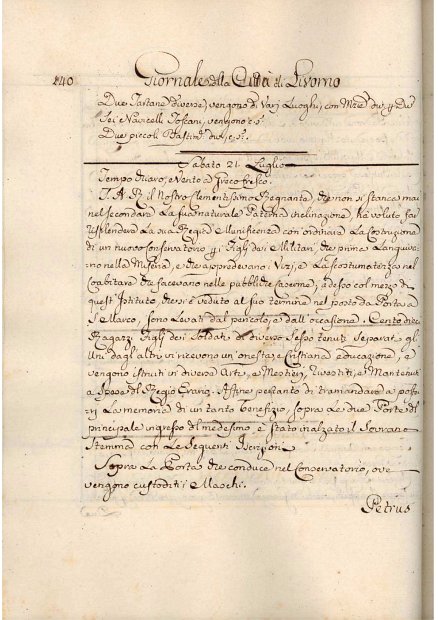 240 Giornale della Città di Livorno
Due Tartane diverse, vengono di Varj Luoghi, con
Sei Navicelli Toscani, vengono
Due piccoli Bastim.
Sabato 21. Luglio
Tempo chiaro, e vento a Greco fresco.
S. A. R. il Nostro Clementissimo Regnante che non si stanca mai
nel secondare la sua naturale Paterna inclinazione, ha voluto far
risplendere la sua Regia Munificenza con ordinare la Costruzione
di un nuovo Conservatorio Figli dei Militari, che prima Languiva-
no nella Miseria, e che apprendevano i Vizj, e la scostumatezza nel
coabitare che facevano nelle pubbliche caserme; adesso col mezzo di
quest'Istituto, che si è veduto al suo termine nel posto da Porta a
S. Marco, sono levati dal pericolo, e dall'occasione. Cento dieci
Ragazzi Figli dei Soldati di diverso sesso tenuti separati gli
Uni dagl'altri vi ricevono un'onesta, e Cristiana educazione, e
vengono istruiti in diverse Arti, e Mestieri, Vestiti, e Mantenuti
a Spese del Regio Erario. Affine pertanto di tramandare a poste-
ri la memoria di un tanto benefizio, sopra le due Porte del
principale ingresso del medesimo, è stato inalzato il Sovrano
Stemma con le seguenti Iscrizioni
Sopra la Porta che conduce nel Conservatorio, ove
vengono custoditi i Maschi.
Petrus